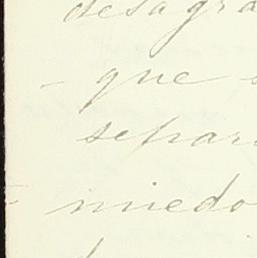 desagra
- que s
separ
miedo